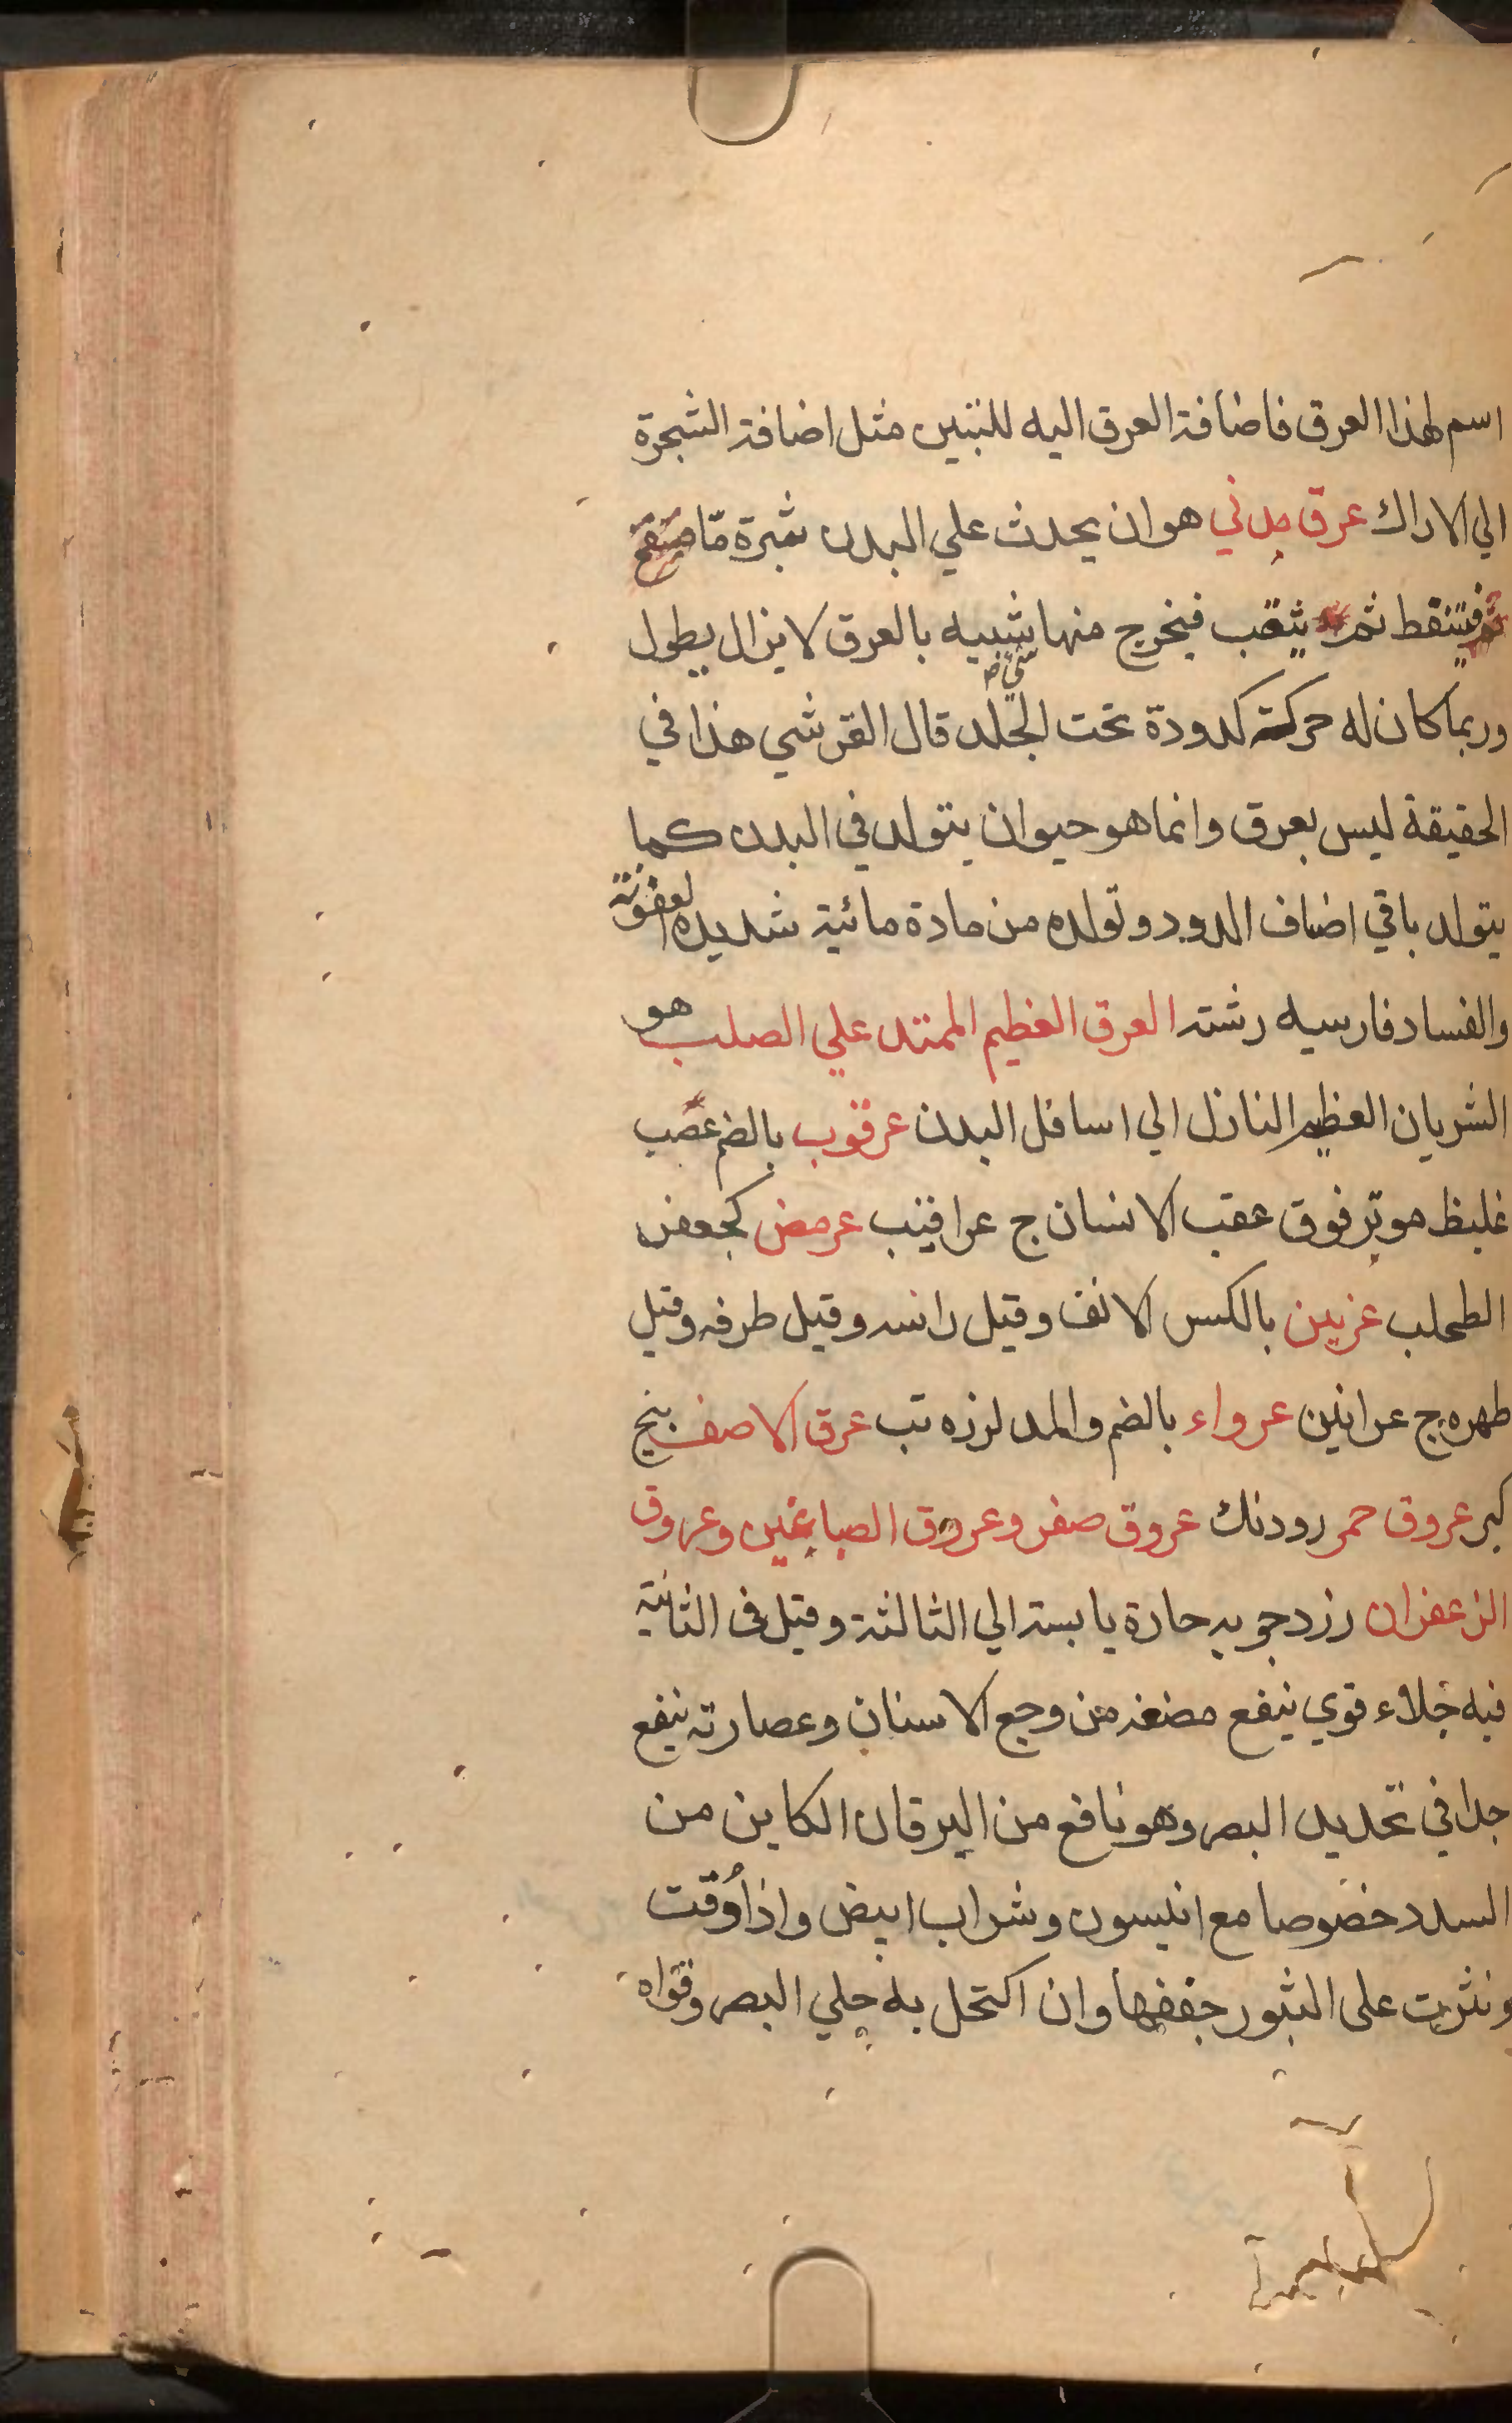 اسم لهذا العرق فاضافة العرق اليه للتبيين مثل اضافة الشجرة
الي الاراك عرق مدني هو ان يحدث علي البدن بثرة ما
فتنقط ثم يثقب فيخرج منها شبيه بالعرق لا يزال يطول
وربما كان له حركة كدودة تحت الجلد قال القرشي هذا في
الحقيقة ليس بعرق وانما هو حيوان يتولد في البدن كما
يتولد باقي اضاف الدود وتولده من مادة مائية شديده العفونة
والفساد فارسيه رشته العرق العظيم الممتد علي الصلب هو
الشريان العظيم النازل الي اسافل البدن عرقوب بالضم عصب
غليظ موتر فوق عقب الانسان ج عراقيب عرمض كجعفر
الطحلب عرنين بالكسر الانف وقيل رانسه وقيل طرفه وقيل
طهره ج عرانين عرواء بالضم والمد لرزه تب عرق الاصف بيخ
كبر عروق حمر رودنك عروق صفر وعروق الصباغين وعروق
الزعفران زردجوبه حارة يابسة الي الثالثة وقيل في الثانية
فيه جلاء قوي ينفع مضغه من وجع الاسنان وعصارته ينفع
جدا في تحديد البصر وهو نافع من اليرقان الكاين من
السدد خصوصا مع انيسون وشراب ابيض واذا وقت
ونثرت على البثور جففها وان اكتحل به جلي البصر وقواه